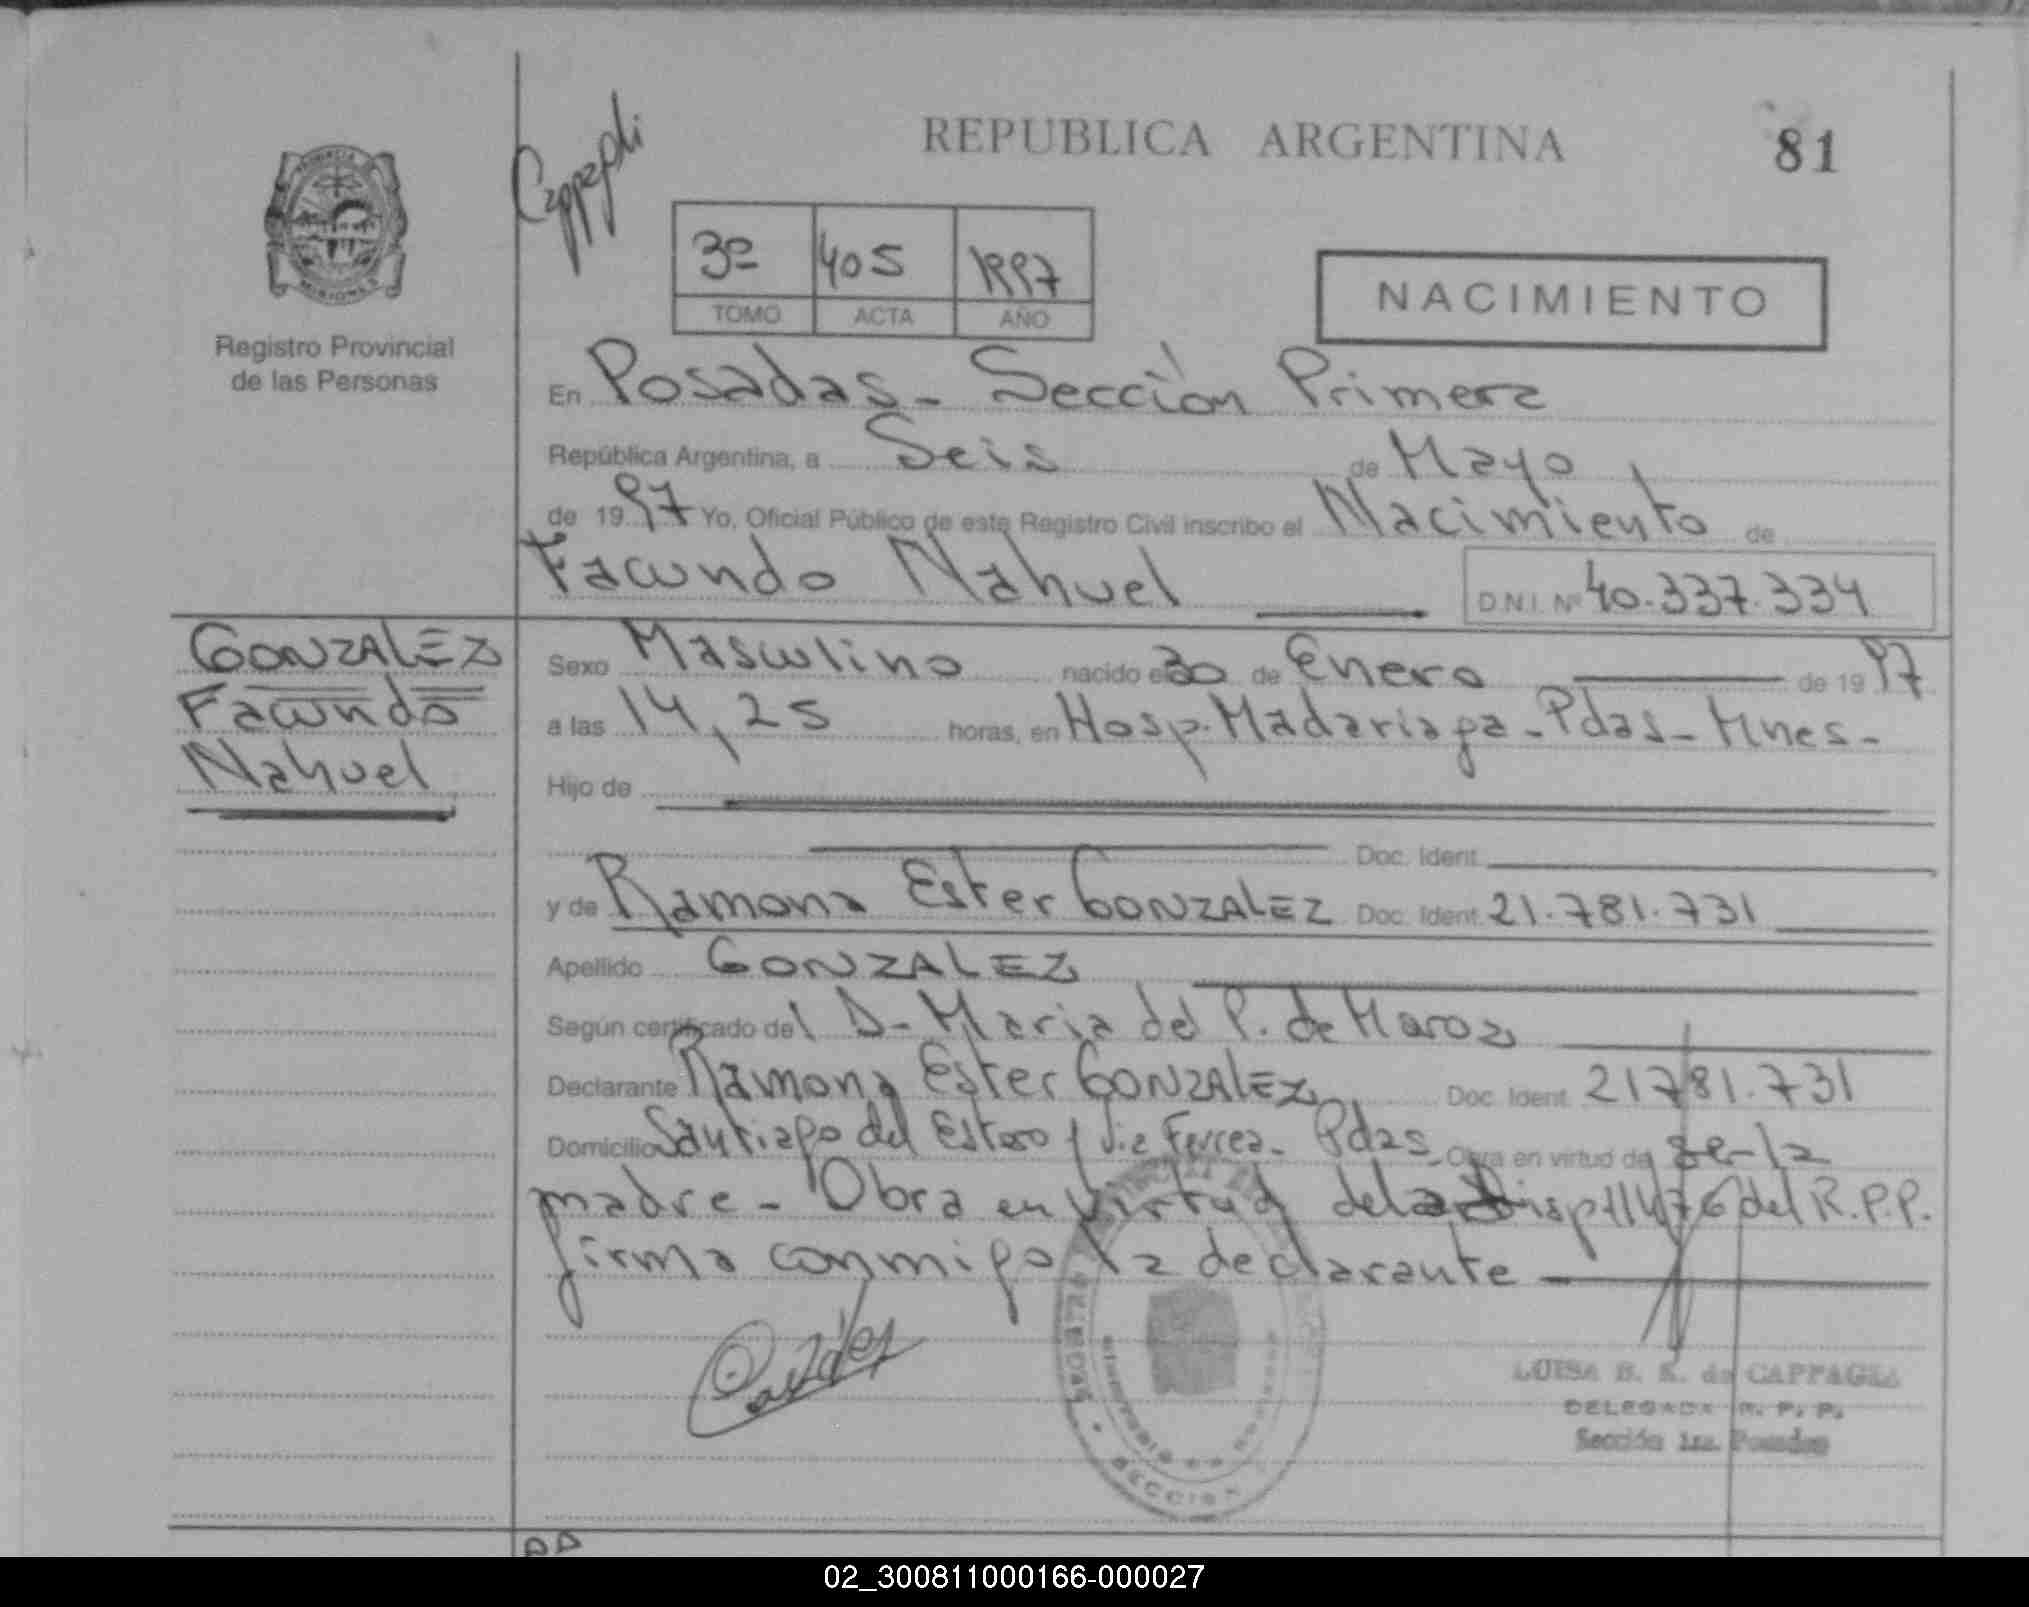 REPUBLICA ARGENTINA
81
PROVINCIA DE
MISIONES
Registro Provincial
de las Personas
3º 405 1997
TOMO ACTA AÑO
NACIMIENTO
En Posadas - Sección Primera
República Argentina, a Seis de Mayo
de 1997 Yo, Oficial Público de este Registro Civil inscribo el Nacimiento de
Facundo Nahuel
D.N.I. Nº 40.337.334
GONZALEZ
Facundo
Nahuel
Sexo Masculino nacido el 30 de Enero de 1997
a las 14,25 horas, en Hosp. Madariaga - Pdas - Mnes -
Hijo de
Doc. Ident.
y de Ramona Ester GONZALEZ Doc. Ident. 21.781.731
Apellido GONZALEZ
Según certificado del D - Maria del P. de
Declarante Ramona Ester GONZALEZ Doc. Ident. 21781.731
Domicilio Santiago del Estero y Via Ferrea - Pdas - Obra en virtud de ser la
madre - Obra en virtud de la Disp 11476 del R.P.P.
firma conmigo la declarante
LUISA B. K. de CAPPAGLI
DELEGADA R. P. P.
Sección 1ra. Posadas
SECCION
02_300811000166-000027